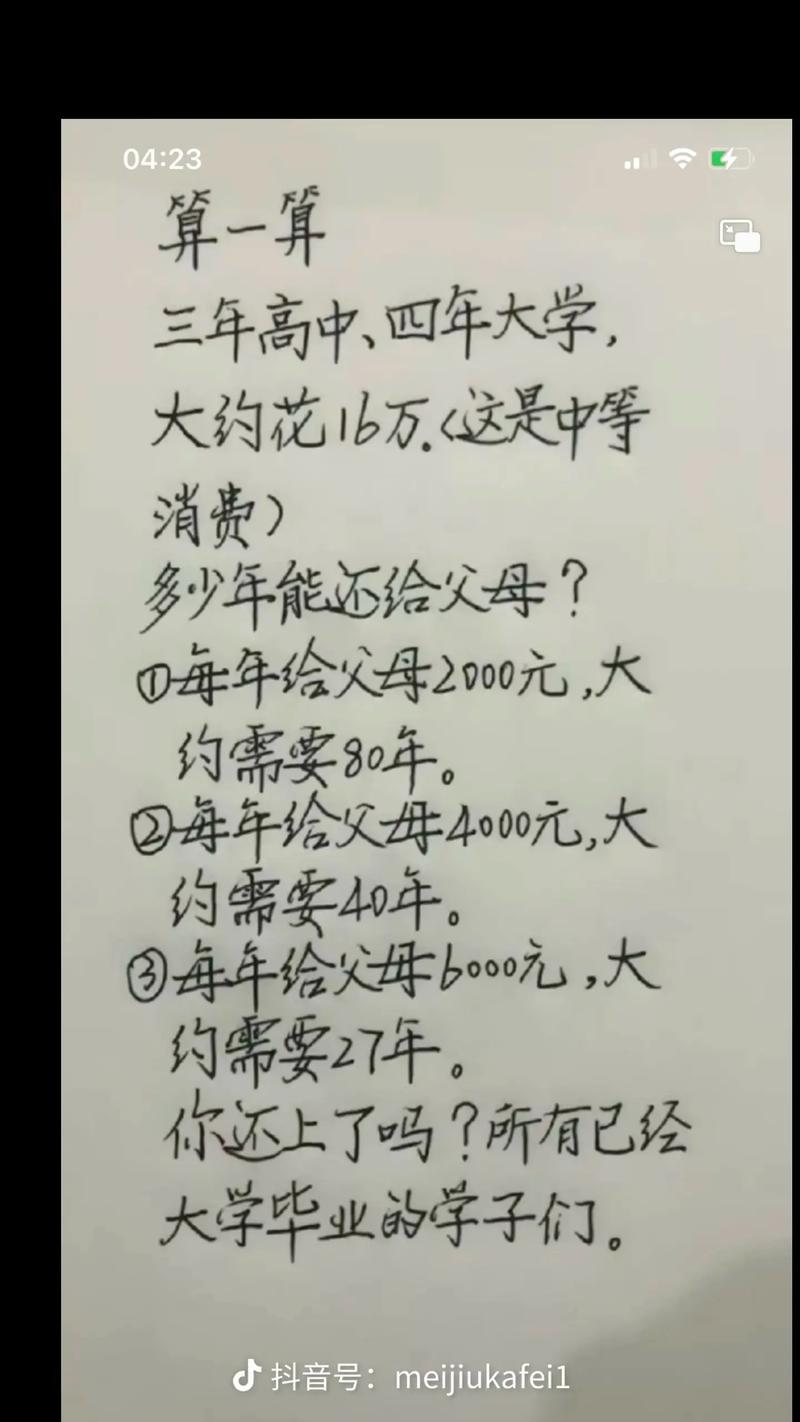 04:23
算一算
三年高中、四年大学,
大约花16万.(这是中等
消费)
多少年能还给父母?
①每年给父母2000元,大
约需要80年。
②每年给父母4000元,大
约需要40年。
③每年给父母6000元,大
约需要27年。
你还上了吗?所有已经
大学毕业的学子们。
抖音号：meijiukafei1